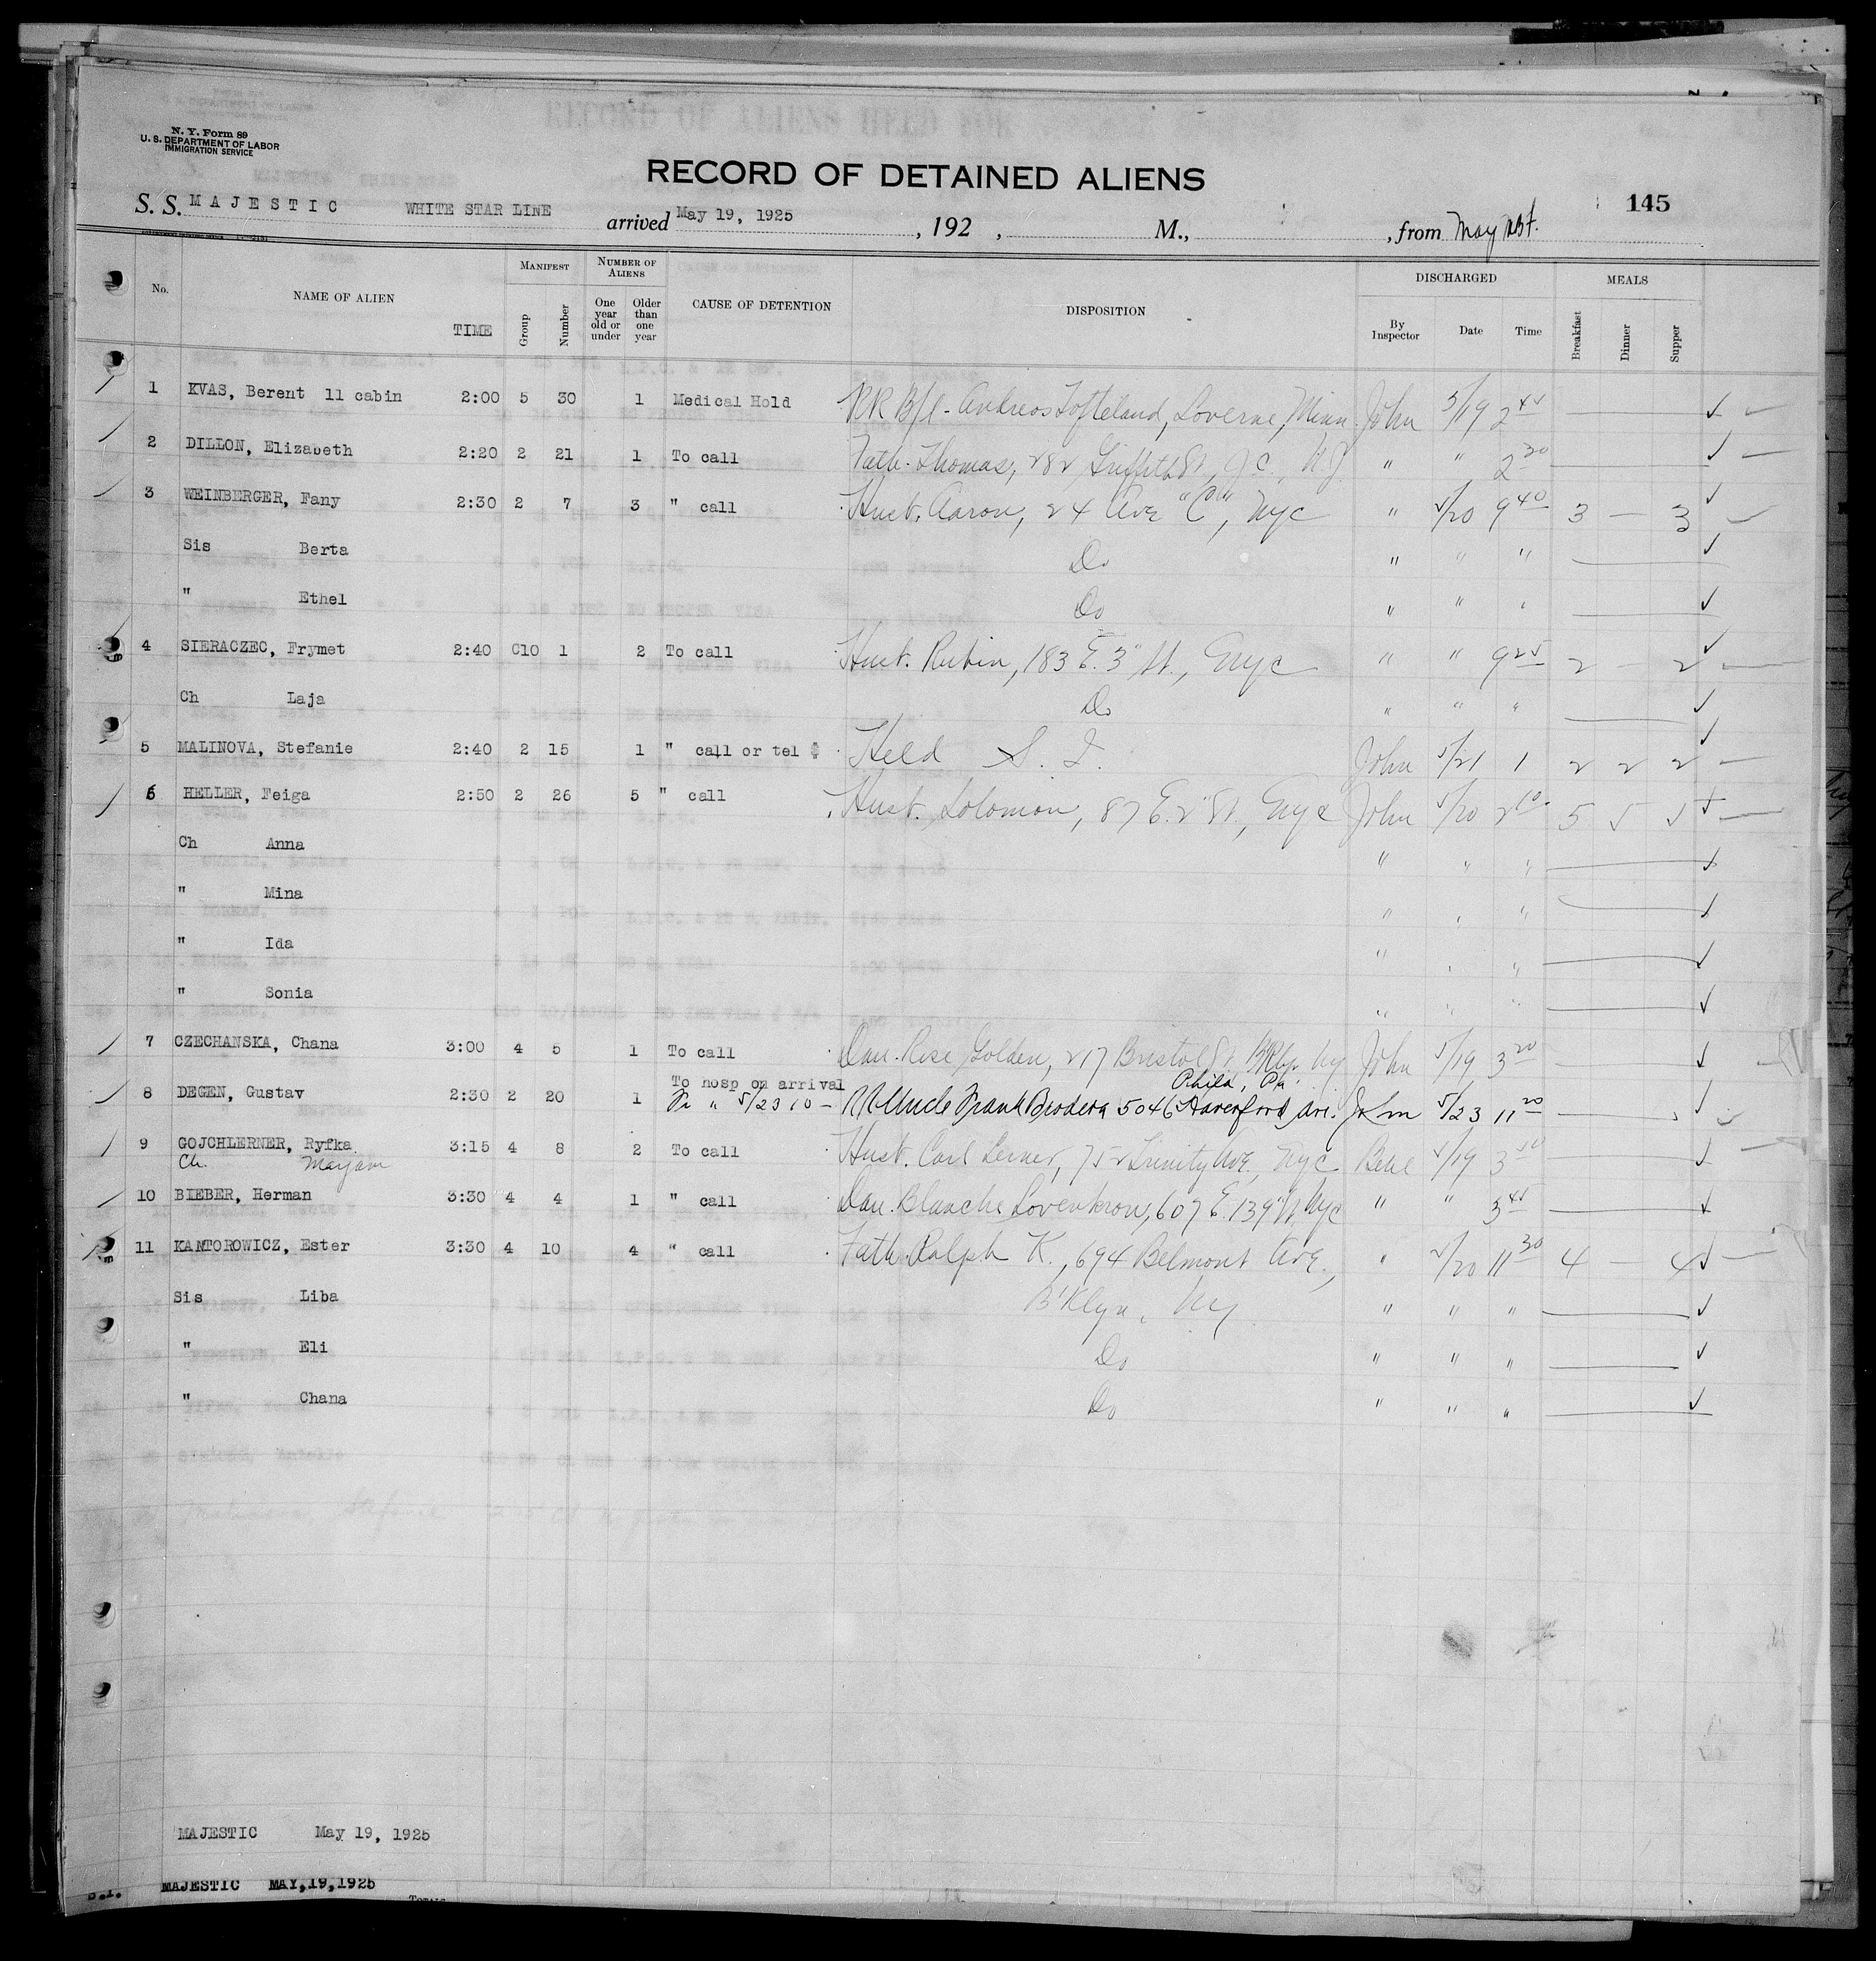 N. Y. Form 89
U. S. DEPARTMENT OF LABOR
IMMIGRATION SERVICE
RECORD OF DETAINED ALIENS
145
S. S. MAJESTIC WHITE STAR LINE arrived May 19, 1925, 192 , M., , from May
No. NAME OF ALIEN TIME MANIFEST Group Number NUMBER OF ALIENS One year old or under Older than one year CAUSE OF DETENTION DISPOSITION DISCHARGED By Inspector Date Time MEALS Breakfast Dinner Supper
1 KVAS, Berent 11 cabin 2:00 5 30 1 Medical Hold RR B/l - Andreas Tofteland, Loverne, Minn. John 5/19 2 45
2 DILLON, Elizabeth 2:20 2 21 1 To call Fath. Thomas, 282 Griffith St, J.C., N.J. " " 2 30
3 WEINBERGER, Fany 2:30 2 7 3 " call Husb. Aaron, 24 Ave "C", Nyc " 5/20 9 40 3 — 3
Sis Berta Do " " "
" Ethel Do " " "
4 SIERACZEC, Frymet 2:40 C10 1 2 To call Husb. Rubin, 183 E. 3" St., Nyc " " 9 25 2 — 2
Ch Laja Do " " "
5 MALINOVA, Stefanie 2:40 2 15 1 " call or tel $ Held S. I. John 5/21 1 2 2 2
6 HELLER, Feiga 2:50 2 26 5 " call Husb. Solomon, 87 E. 2" St., Nyc John 5/20 2 10 5 5 5
Ch Anna " " "
" Mina " " "
" Ida " " "
" Sonia " " "
7 CZECHANSKA, Chana 3:00 4 5 1 To call Dau. Rose Golden, 217 Bristol St. B'klyn Ny John 5/19 3 20
8 DEGEN, Gustav 2:30 2 20 1 To hosp on arrival Phila, Pa.
Fr " 5/23 10 — RR Uncle Frank Brodera 5046 Haverford Ave. John 5/23 11 20
9 GOJCHLERNER, Ryfka 3:15 4 8 2 To call Husb. Carl Lerner, 752 Trinity Ave. Nyc 5/19 3 50
Ch. Marjam
10 BIEBER, Herman 3:30 4 4 1 " call Dau. Blanche Lovenkron, 607 E. 139" St. Nyc " " 3 45
11 KANTOROWICZ, Ester 3:30 4 10 4 " call Fath. Ralph K., 694 Belmont Ave., " 5/20 11 30 4 — 4
Sis Liba B'Klyn, Ny " " "
" Eli Do " " "
" Chana Do " " "
MAJESTIC May 19, 1925
S.I. MAJESTIC MAY,19,1925